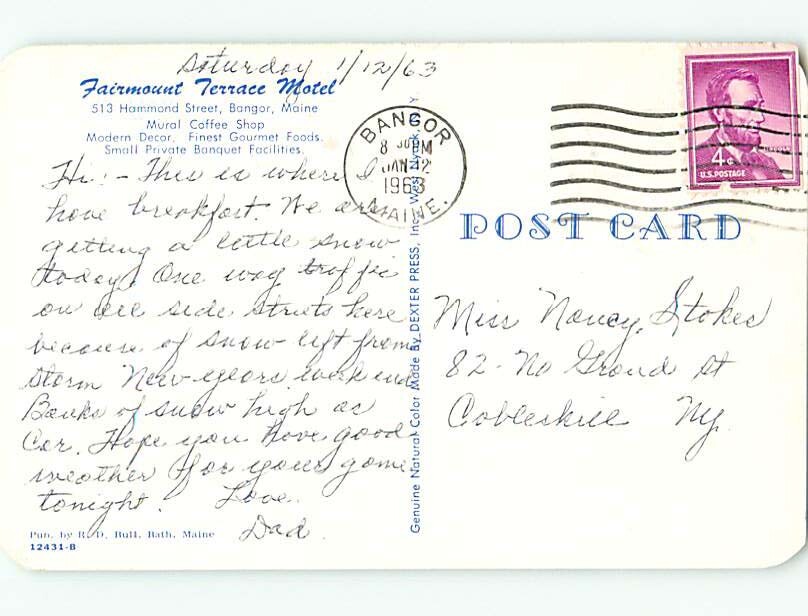 Saturday 1/12/63
Fairmount Terrace Motel
513 Hammond Street, Bangor, Maine
Mural Coffee Shop
Modern Decor, Finest Gourmet Foods.
Small Private Banquet Facilities.
Hi: - This is where I
have breakfast. We are
getting a little snow
today. One way traffic
on all side streets here
because of snow left from
storm New years week end
Banks of snow high as
Car. Hope you have good
weather for your game
tonight. Love.
Dad.
Pub. by R. D. Bull, Bath, Maine
12431-B
Genuine Natural Color Made By DEXTER PRESS, Inc., West Nyack, Y
BANGOR
8 PM
JAN 12
1963
MAINE.
4¢
LINCOLN
U.S. POSTAGE
POST CARD
Miss Nancy Stokes
82 - No Grand St
Cobleskill NY.